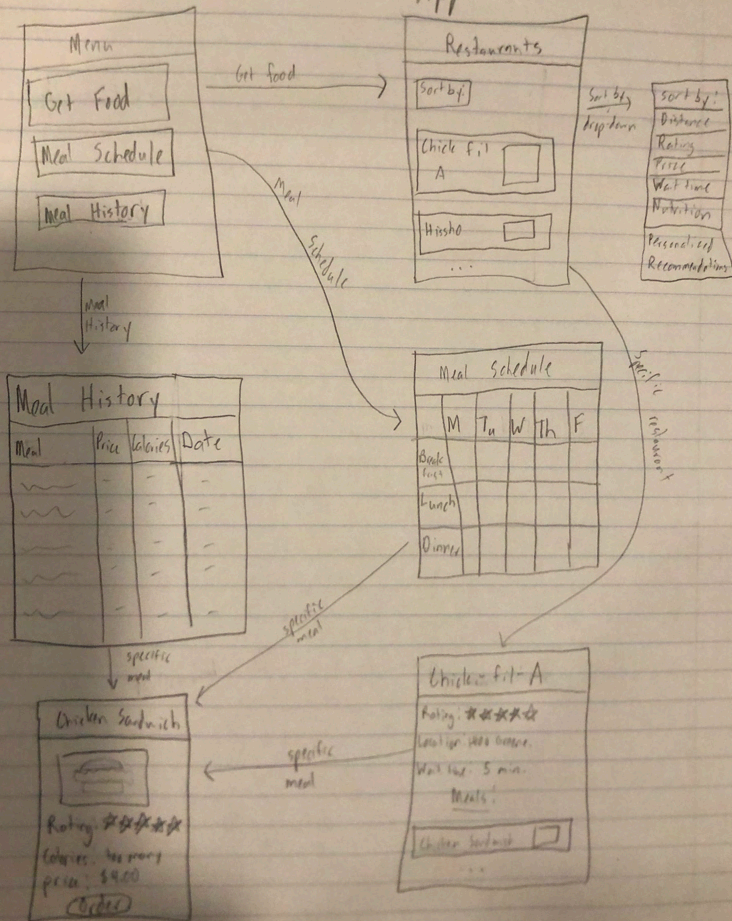 App
Menu
Get Food
Meal Schedule
Meal History
Get food
Restaurants
Sort by:
Chick fil
A
Hissho
...
Sort by
dropdown
Sort by:
Distance
Rating
Price
Wait time
Nutrition
Personalized
Recommendations
Meal
Schedule
Meal
History
Specific restaurant
Meal History
Meal Price Calories Date
Meal Schedule
M Tu W Th F
Break
fast
Lunch
Dinner
specific
meal
specific
meal
Chicken Sandwich
Rating:
Calories: too many
price: $4.00
Order
specific
meal
Chick-fil-A
Rating:
Location:
Wait time: 5 min.
Meals:
Chicken Sandwich
...